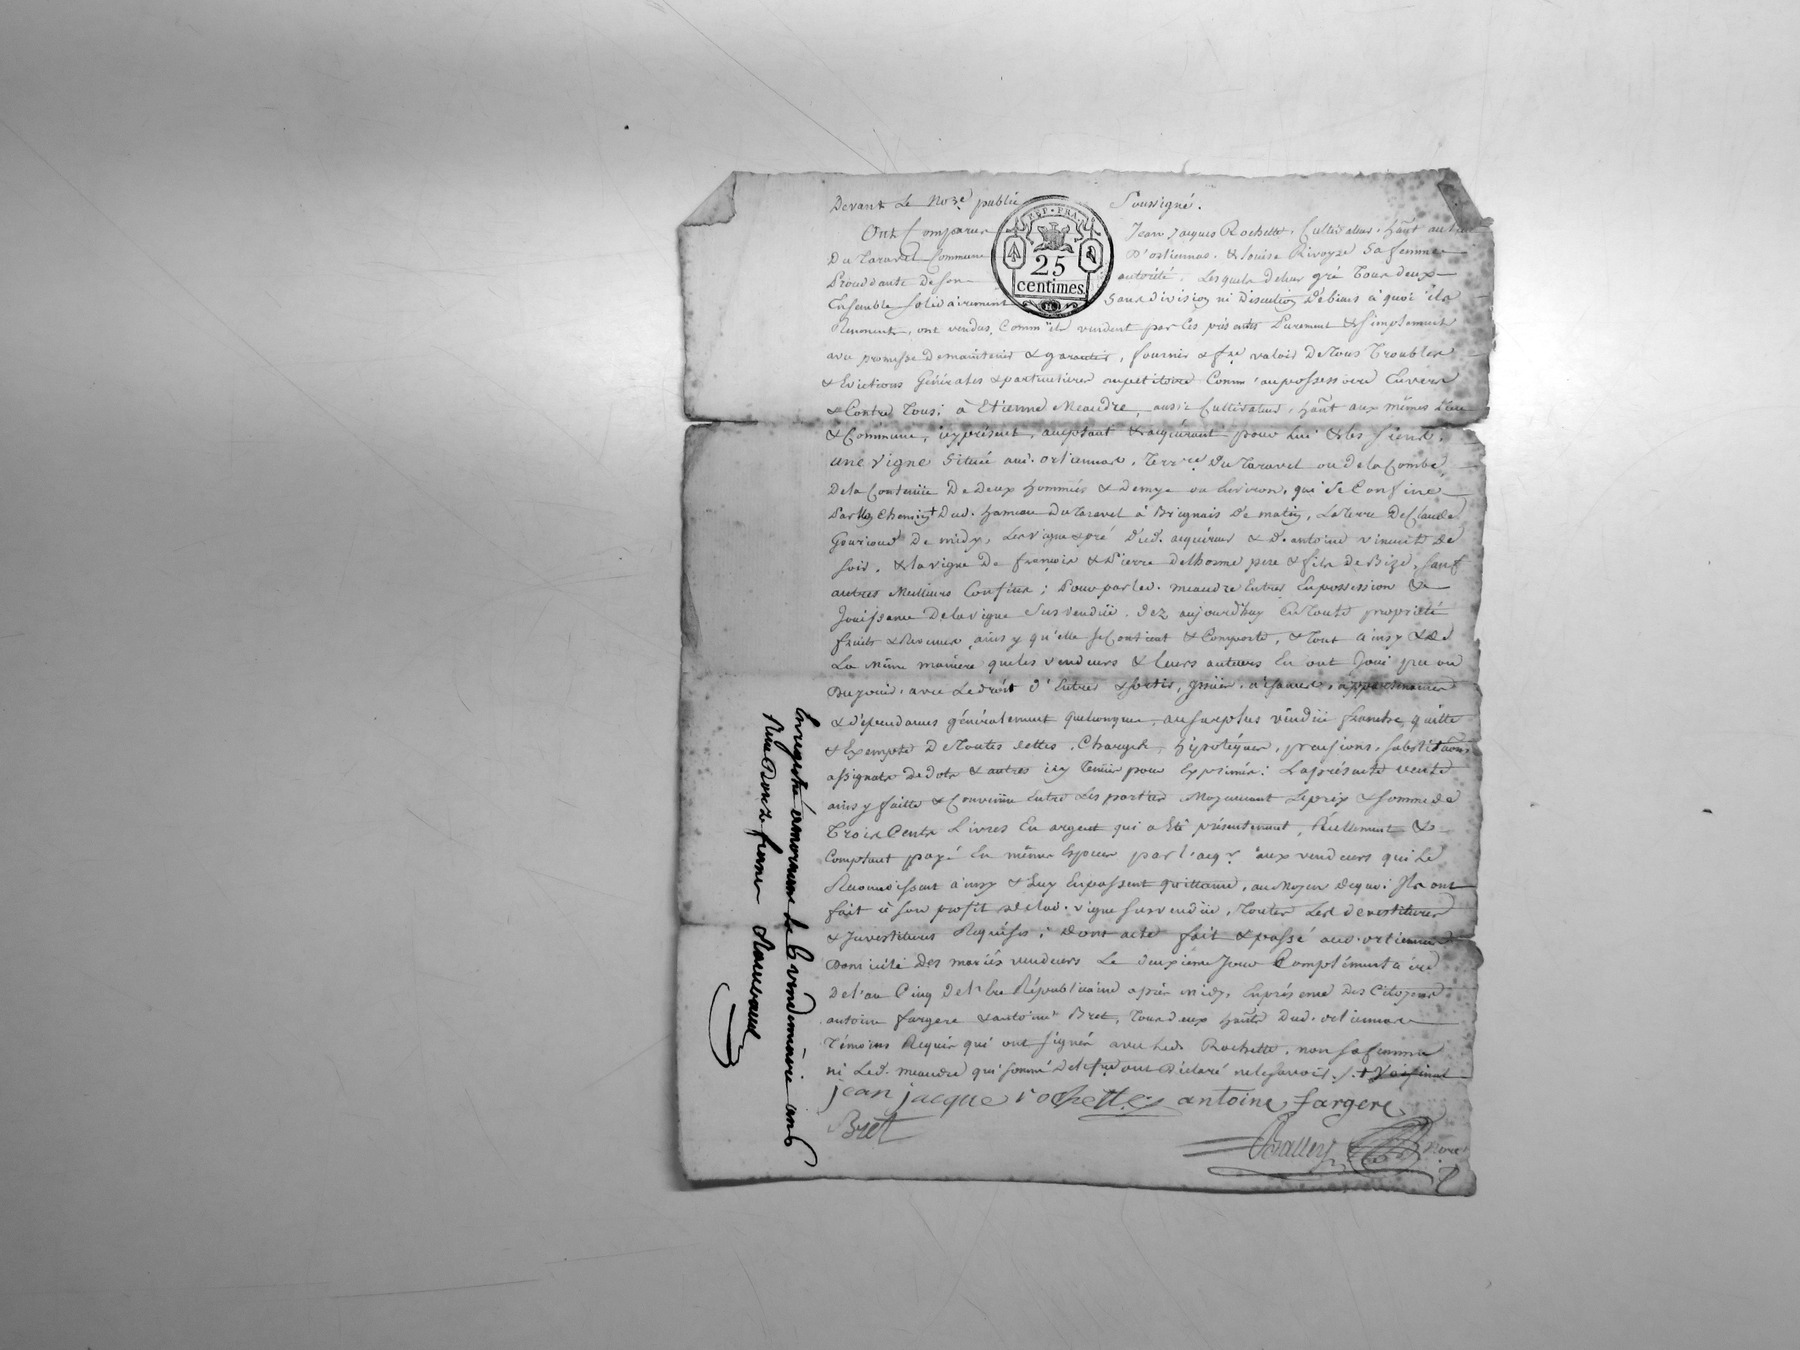 Devant Le No.re public Soussigné.
Ont Comparus Jean Jacques Rochette, Cultivateur, Hañt au
Du Taravel Commune D'orliennas. & Louise Rivoyre Sa femme
autorité, Lesquels de leur gré Tous deux
Ensemble Solidairement Sans division ni Discution D'e biens à quoi ils
Renoncent, ont vendus, Comm'ils vendent par Ces présantes Purement & simplement
avec promesse De maintenir & garantir, fournir & fre valoir De Tous Troubles
& Evictions Générales & particulieres au petitoire Comm'au possessoire Envers
& Contre Tous; à Etienne Meaudre, aussi Cultivateur, Hañt aux mêmes Lieu
& Commune, icy présent, acceptant & acquérant pour Lui & les siens.
une vigne Située aud. orliennas, Terr.re Du Taravel ou de la Combe,
De la Contenüe De Deux hommées & demye ou Environ, qui Se Confine
Par Chemin Dud. Hameau Du Taravel à Brignais De matin, La Terre De Claude
De midy, Les vigne & pré Dud. acquéreur & d'antoine vincent De
Soir, & la vigne De françois & Pierre Delhorme pere & fils de Bize, Sauf
autres Meilleurs Confins; Pour par led. meaudre Entrer En possession &
Jouissance De la vigne Sus vendüe Dez aujourd'huy En Toute propriété
fruits & Revenus, ainsy qu'elle Se Contient & Comporte, & Tout ainsy & de
La Même maniere que les vendeurs & leurs auteurs En ont Joui pu ou
Du jouir, avec Le droit d'Entrer & sortir, appartenances
& dépendances généralement quelconques, au surplus vendüe franche, quitte
& Exempte De Toutes dettes, Charges, Hipotéques, pensions, substitutions
assignats de dots & autres icy Tenües pour Exprimées: La présente vente
ainsy faitte & Convenüe Entre Les parties Moyennant Le prix & somme de
Trois Cents Livres En argent qui a Eté présentement, Réellement &
Comptant payé En mêmes Especes par l'acq.r aux vendeurs qui Le
Reconnoissent ainsy & Luy En passent quittance, au Moyen De quoi Ils ont
fait à Son profit De lad. vigne Sus vendüe, Toutes Les devestitures
& Investitures Requises; Dont acte fait & passé aud. orliennas
Domicile Des mariés vendeurs Le deuxieme Jour Complémentaire
De l'an Cinq De l'Ere Républicaine après midy, En présence Des Citoyens
antoine fargere & antoine Bret, Tous deux Hañts Dud. orliennas
Témoins Requis qui ont signés avec Led. Rochette, non Sa femme
ni Led. meaudre qui sommé De le fre ont Déclaré ne le savoir.
jean jacque rochette antoine fargere
Bret
Enregistré le 6 vendemiaire an 6
Reçu Douze francs
REP. FRA.
25
centimes.